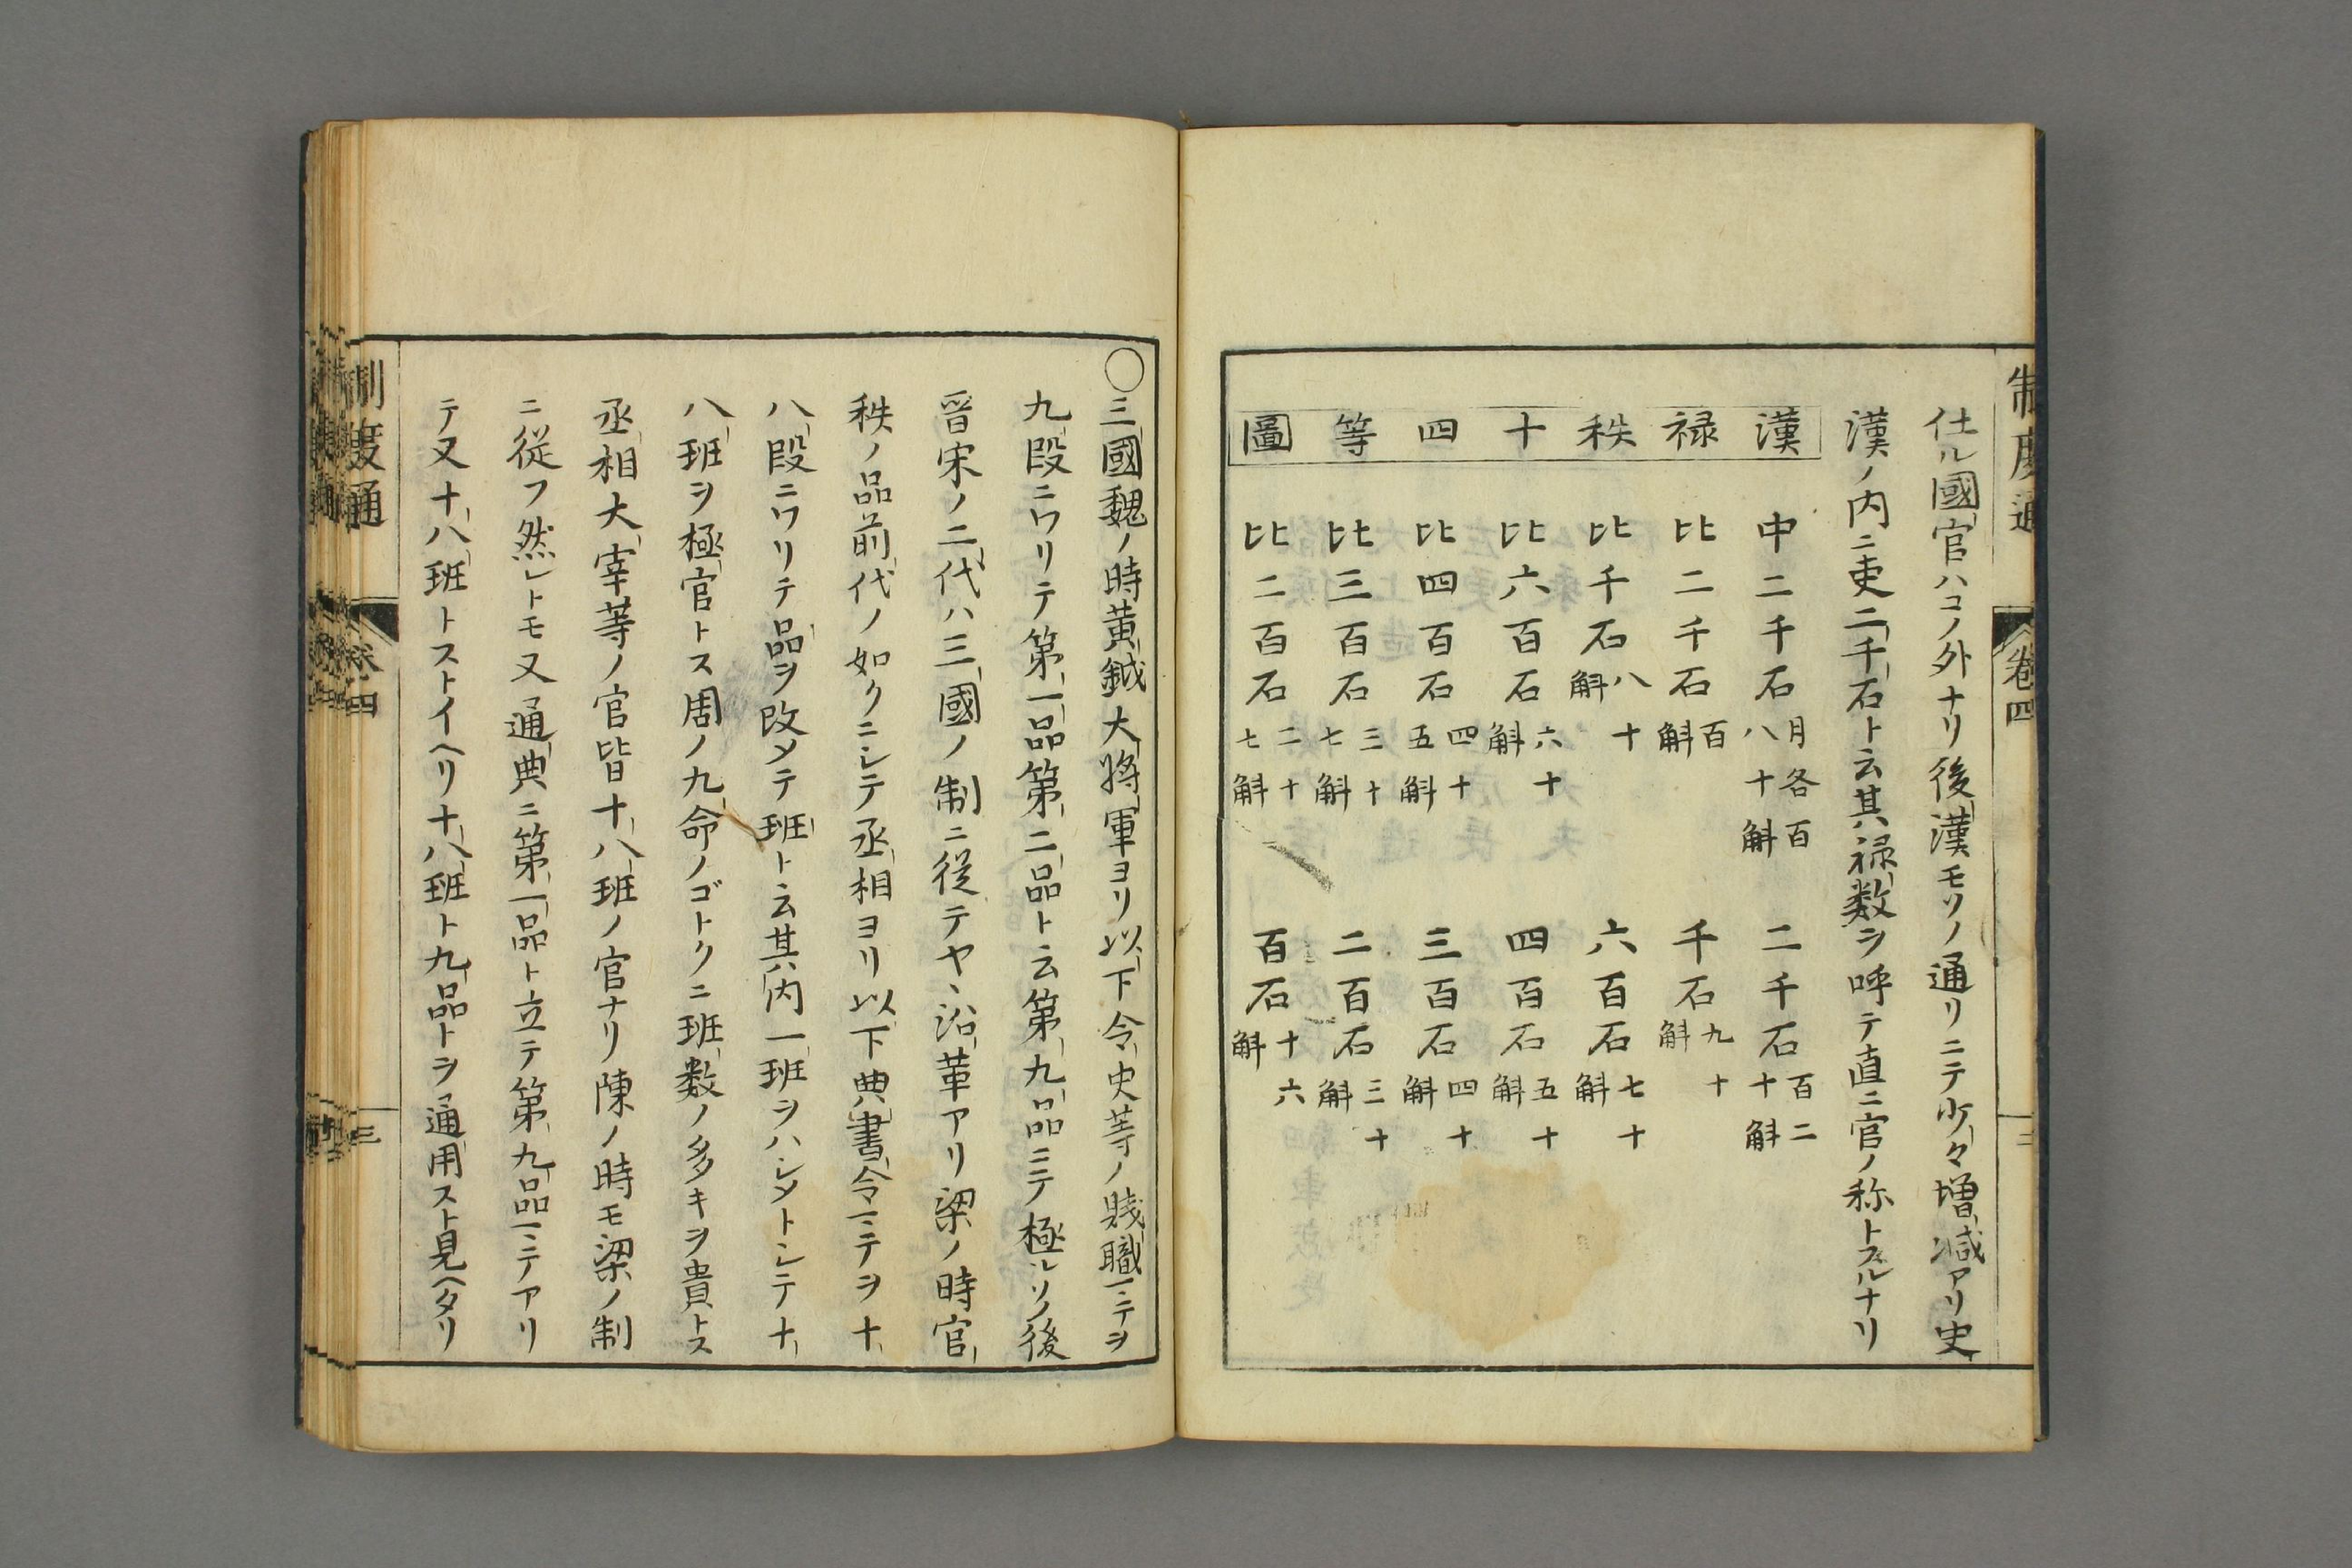 仕ル國官ハコノ外ナリ後漢モソノ通リニテ少々増減アリ史
漢ノ内ニ吏二千石ト云其禄数ヲ呼テ直ニ官ノ称トスルナリ
漢禄秩十四等圖
中二千石 月各百八十斛 二千石 百二十斛
比二千石 百斛 千石 九十斛
比千石 八十斛 六百石 七十斛
比六百石 六十斛 四百石 五十斛
比四百石 四十五斛 三百石 四十斛
比三百石 三十七斛 二百石 三十斛
比二百石 二十七斛 百石 十六斛
○三國魏ノ時黄鉞大將軍ヨリ以下令史等ノ賤職ニテヲ
九段ニワリテ第一品第二品ト云第九品ニテ極ルソノ後
晋宋ノ二代ハ三國ノ制ニ従テヤヽ沿革アリ梁ノ時官
秩ノ品前代ノ如クニシテ丞相ヨリ以下典書令ニテヲ十
八段ニワリテ品ヲ改メテ班ト云其内一班ヲハシメトシテ十
八班ヲ極官トス周ノ九命ノゴトクニ班数ノ多キヲ貴トス
丞相大宰等ノ官皆十八班ノ官ナリ陳ノ時モ梁ノ制
ニ従フ然レトモ又通典ニ第一品ト立テ第九品ニテアリ
テ又十八班トストイヘリ十八班ト九品トヲ通用スト見ヘタリ
制度通 卷四 三